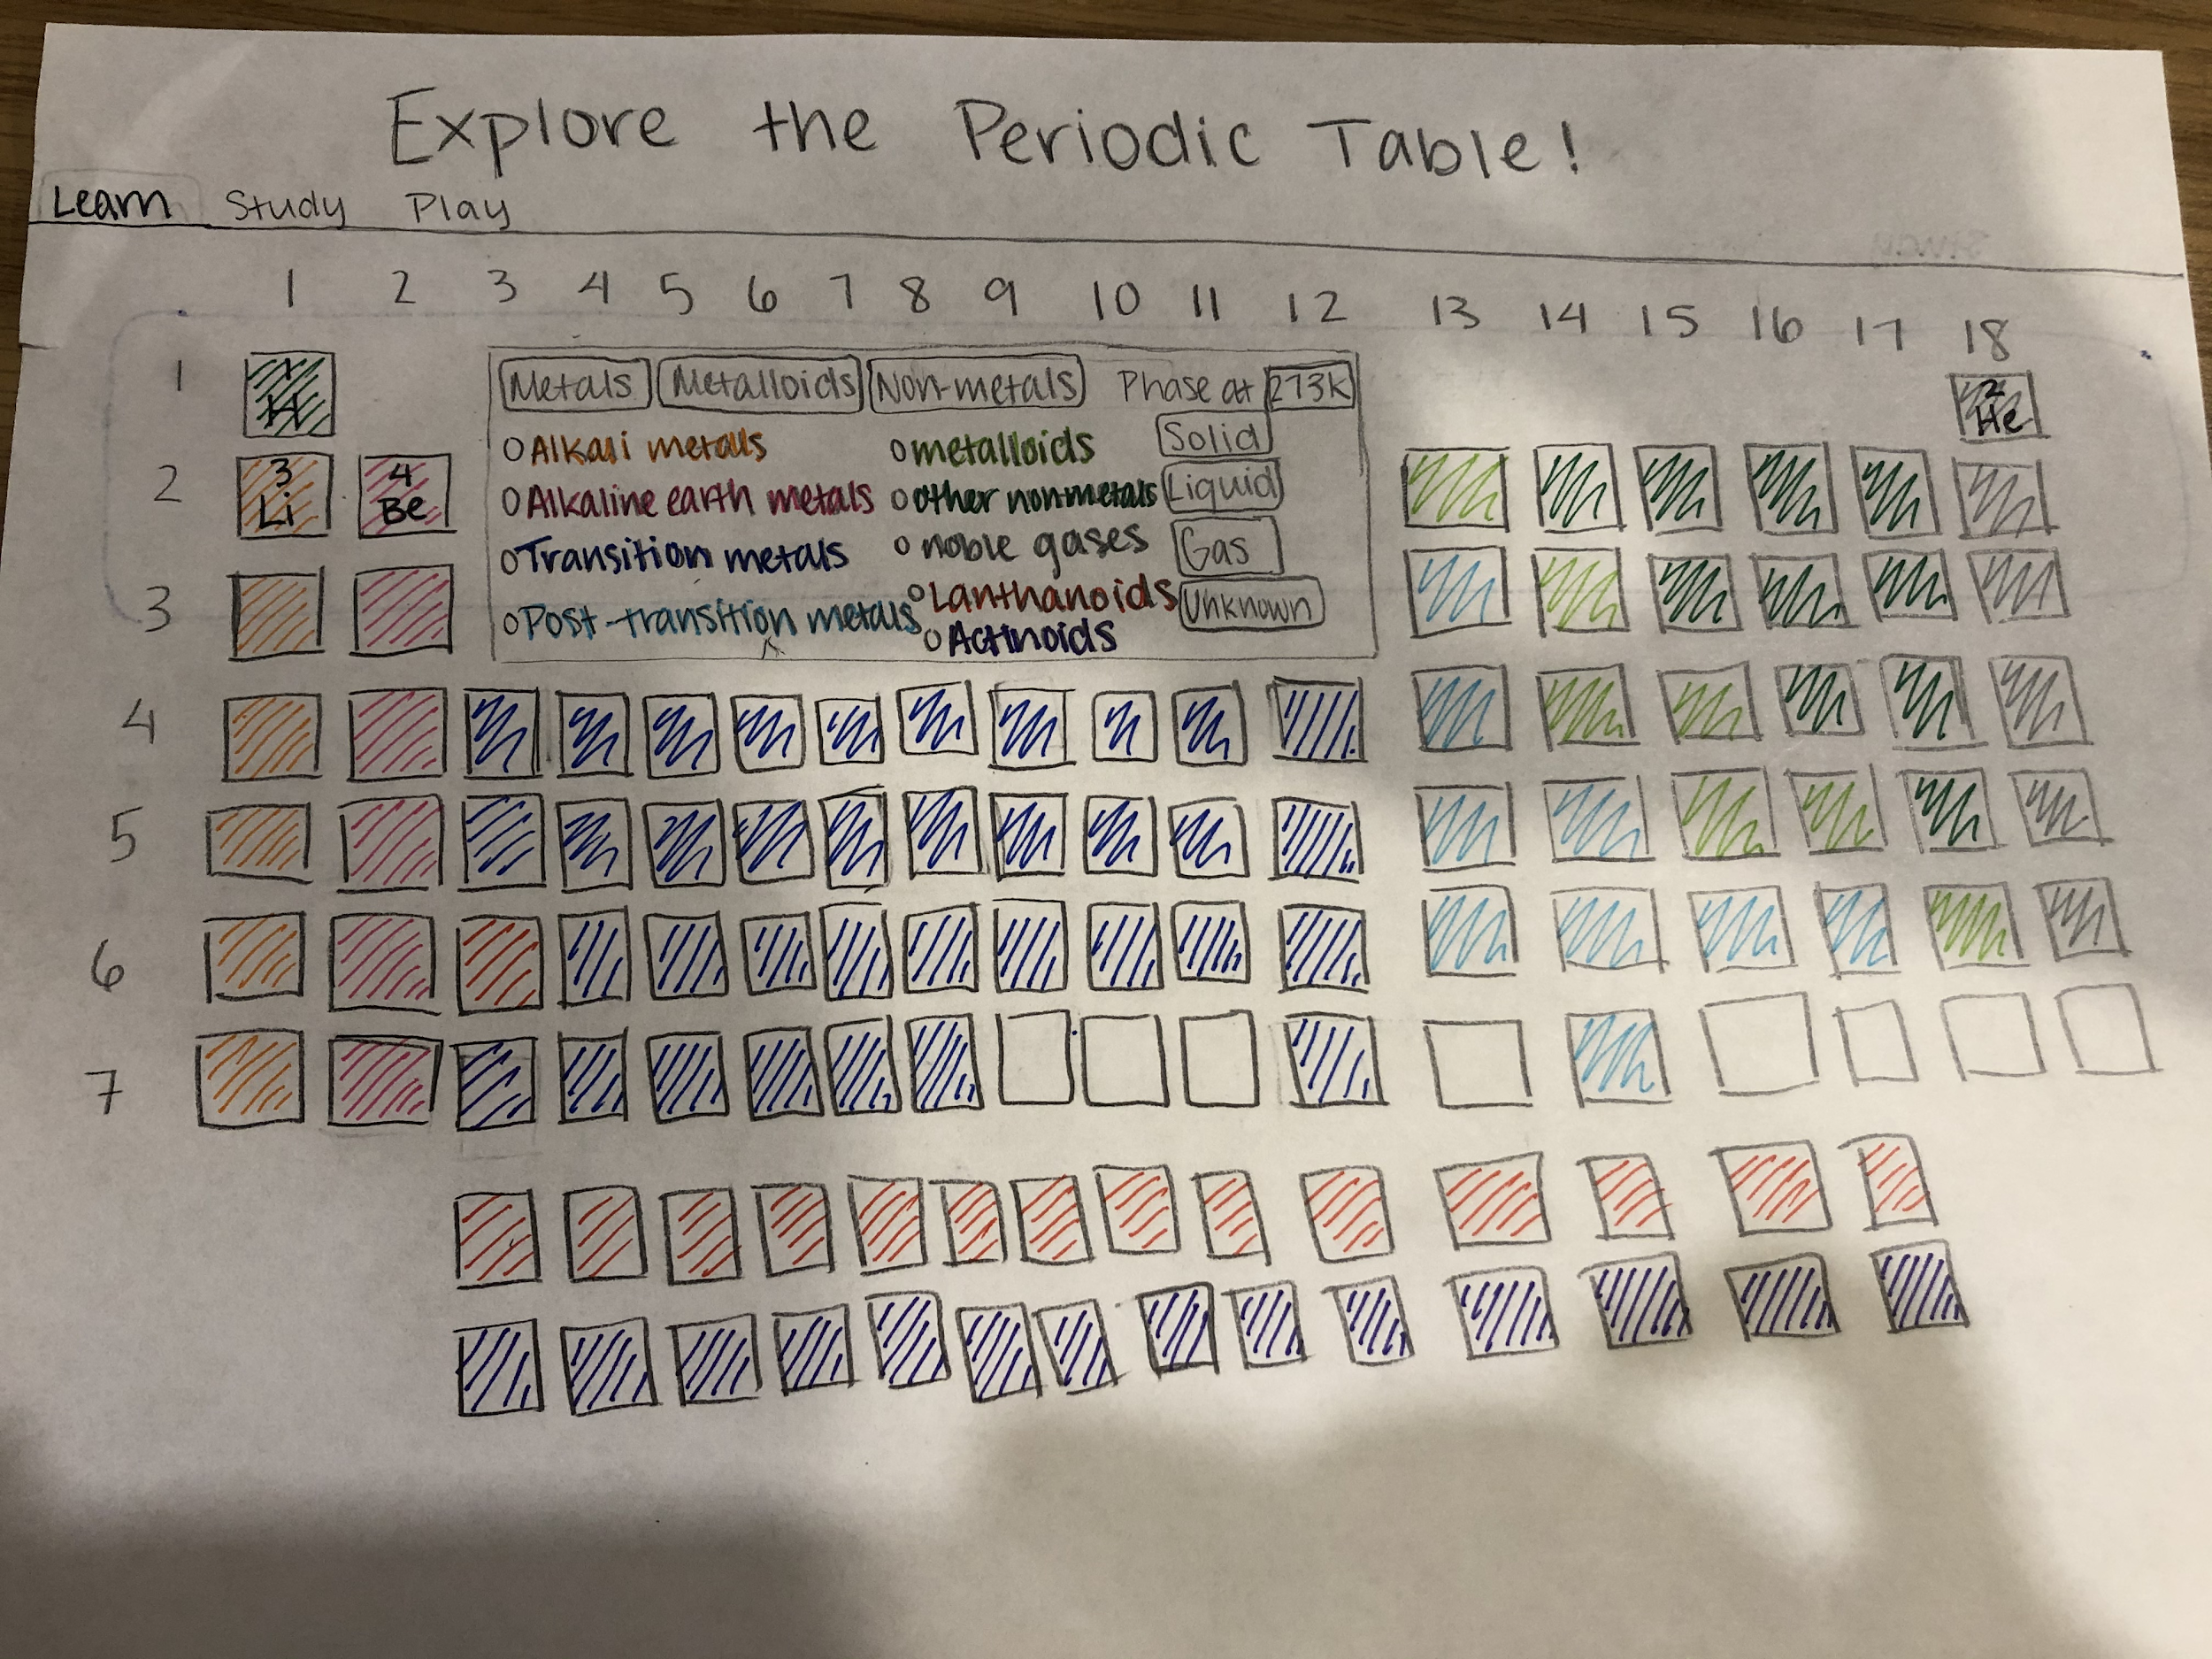 Explore the Periodic Table!
Learn Study Play
1 2 3 4 5 6 7 8 9 10 11 12 13 14 15 16 17 18
1
1
H
2
He
Metals Metalloids Non-metals Phase at 273K
Alkali metals metalloids Solid
2
3
Li
4
Be
Alkaline earth metals other nonmetals Liquid
Transition metals noble gases Gas
3
Post-transition metals Lanthanoids Unknown
Actinoids
4
5
6
7